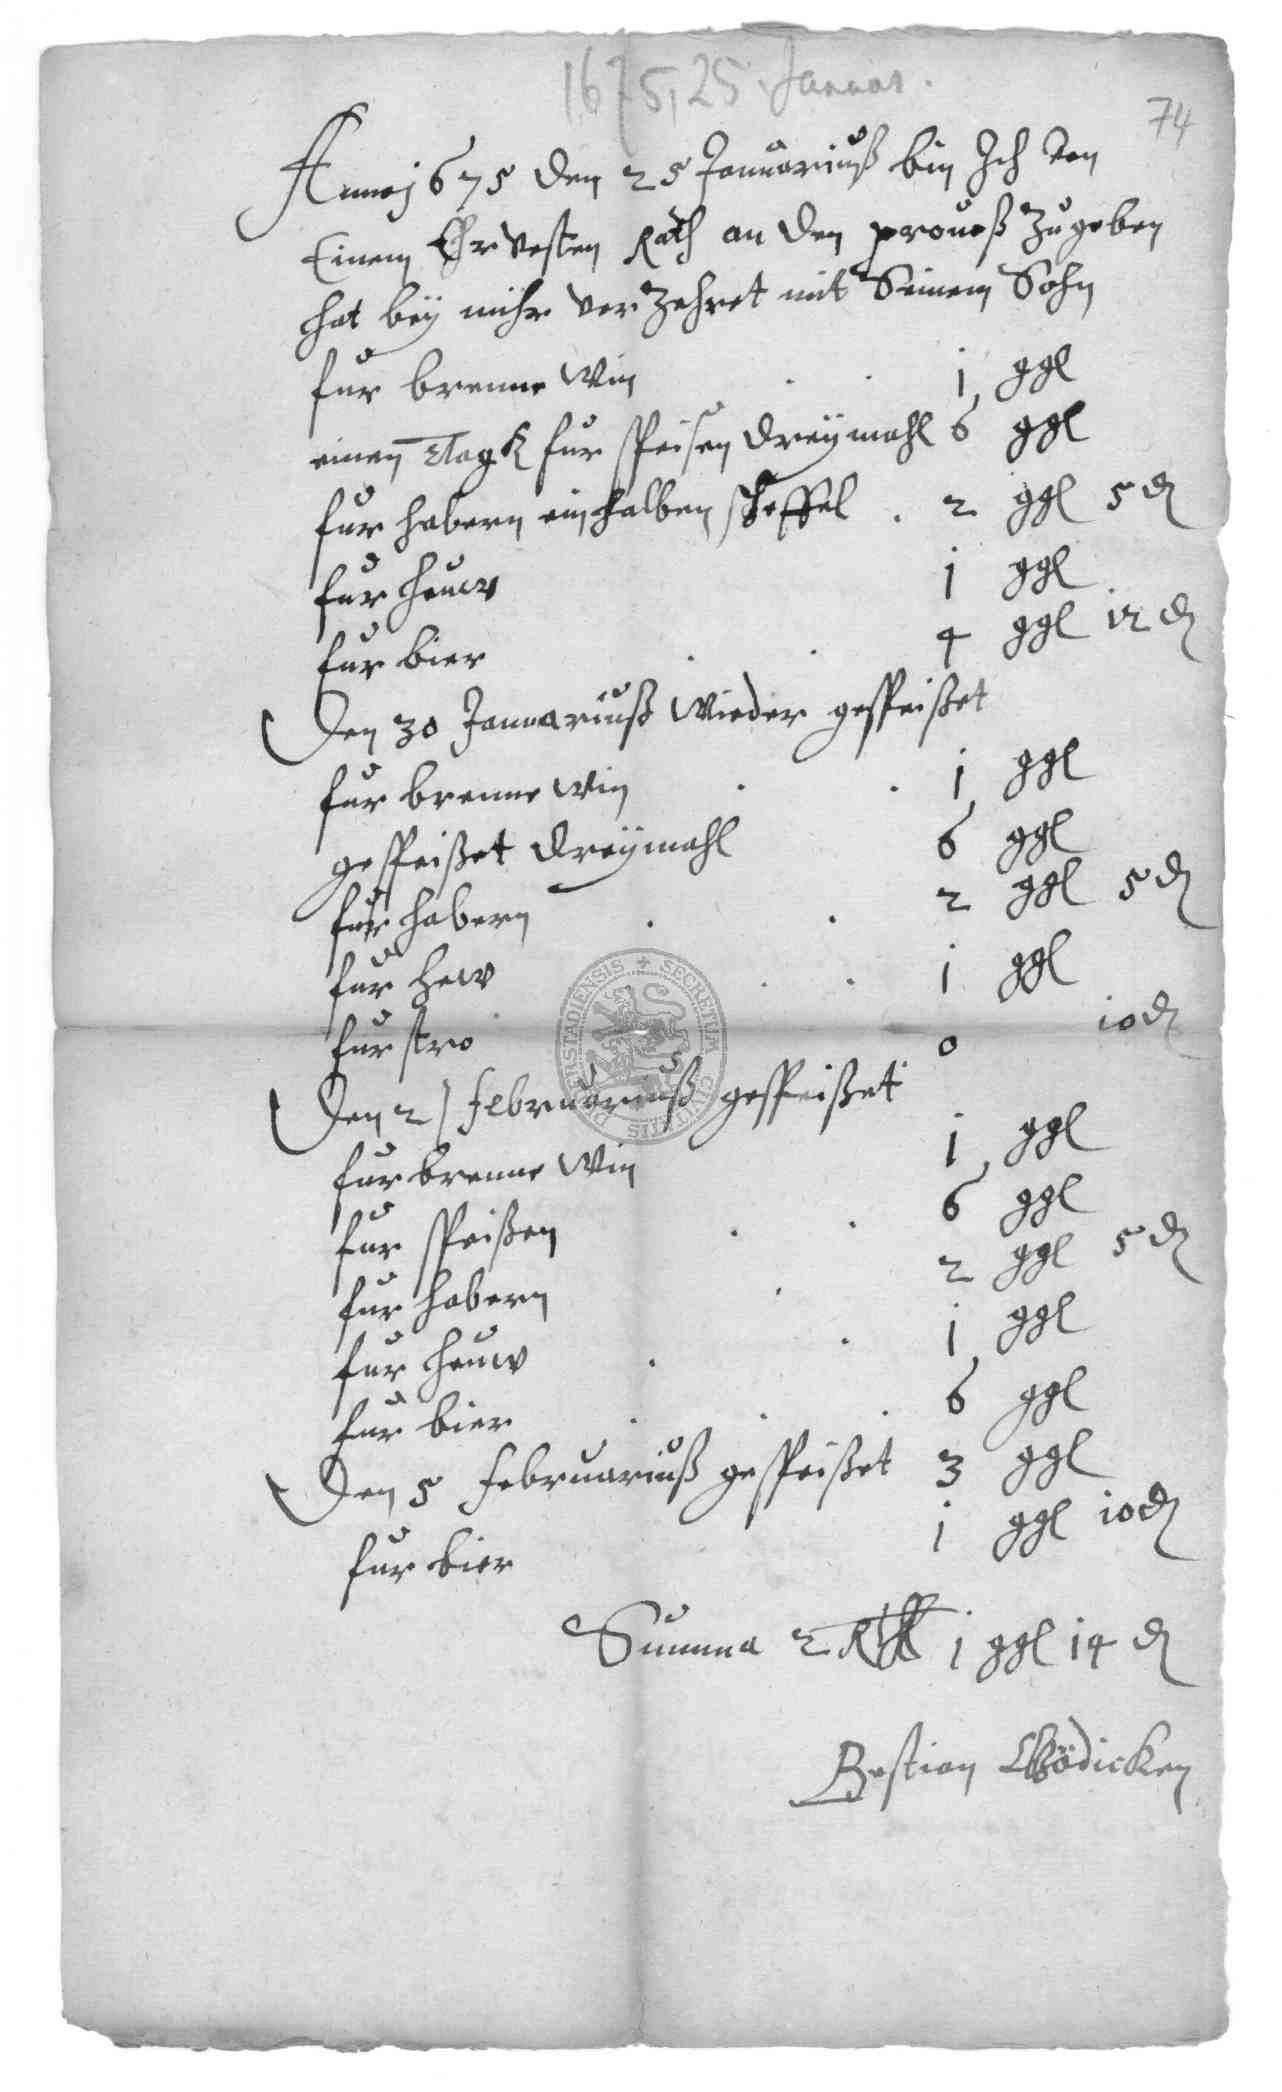 1675, 25 Januar.
74
Anno j675 den 25 Januariuß bin Ich von
Einem Ehrvesten Rath an den provoß zu geben
hat beÿ mihr ver Zehret mit Seinem Sohn
fur brenne Win . . j ggl
einen Tagk fur speisen dreÿmahl 6 ggl
fur habern ein halben scheffel . 2 ggl 5 d
fur heuw j ggl
fur bier . . 4 ggl i2 d
Den 30 Januariuß Wieder gespeißet
fur brenne Win . . j ggl
gespeißet dreÿmahl 6 ggl
fur habern . . 2 ggl 5 d
fur hew . . j ggl
fur stro 0 i0 d
SECRETUM CIVITATIS
Den 2 februariuß gespeißet
fur brenne Win j ggl
fur speißen . . 6 ggl
fur habern . 2 ggl 5 d
fur heuw . . j ggl
fur bier . . . 6 ggl
Den 5 februariuß gespeißet 3 ggl
fur bier j ggl i0 d
Summa 2 Rth j ggl i4 d
Bastian Gödicken